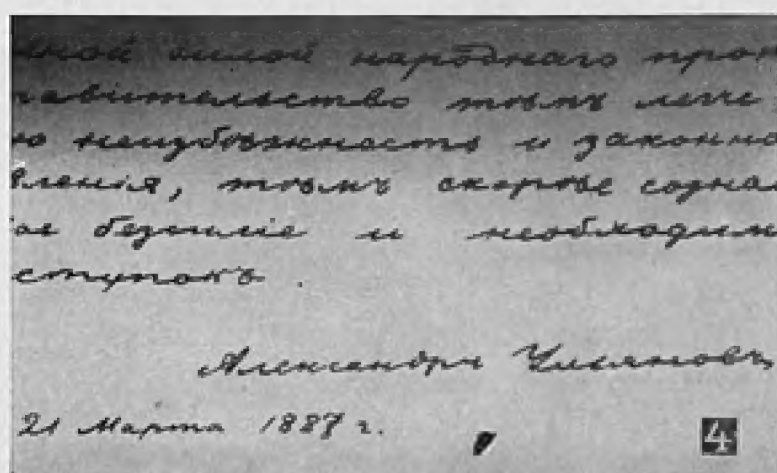 нной силой народнаго про
равительство тѣмъ легче
ю неизбѣжность и законно
вленія, тѣмъ скорѣе созна
ое безсиліе и необходим
ступокъ.
Александръ Ульяновъ,
21 Марта 1887 г.
4